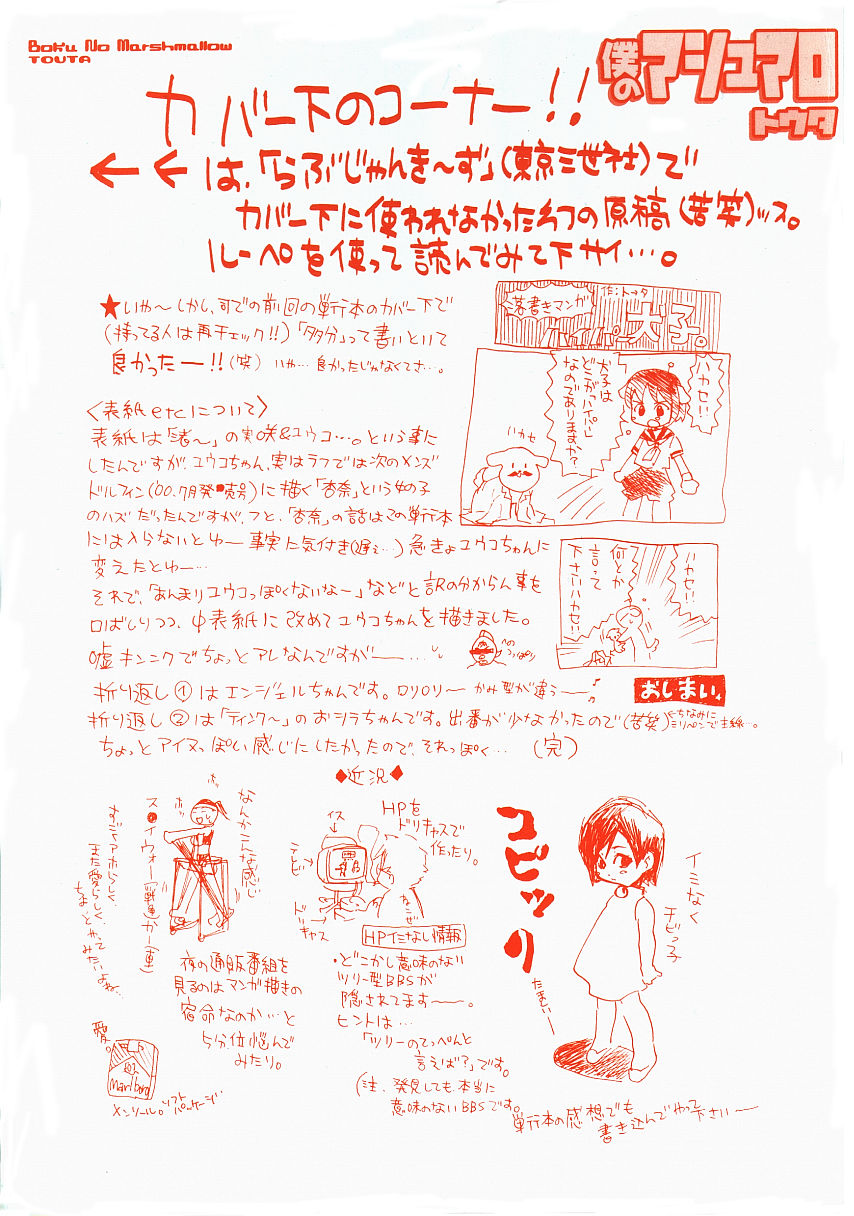 Boku No Marshmallow
TOUTA
僕のマシュマロ
トウタ
カバー下のコーナー!!
←←は、「らぶじゃんき～ず」(東京三世社)で
カバー下に使われなかった
原稿(苦笑)ッス。
ルーペを使って読んでみて下サイ…。
★いや～しかし、
前回の単行本のカバー下で
(持ってる人は再チェック!!)「多分」って書いといて
良かったー!!(笑) いや…良かったじゃなくてさ…。
〈表紙etcについて〉
表紙は「渚～」の実咲&ユウコ…。という事に
したんですが、ユウコちゃん、実はラフでは次のメンズ
ドルフィン('00.7月発売号)に描く「杏奈」という女の子
のハズだったんですが、フと、「杏奈」の話はこの単行本
には入らないとゆー事実に気付き(遅ぇ…)急きょユウコちゃんに
変えたとゆー…
それで、「あんまりユウコっぽくないなー」などと訳の分からん事を
口ばしりつつ、中表紙に改めてユウコちゃんを描きました。
嘘キンニクでちょっとアレなんですがー…
折り返し①はエンジェルちゃんです。ロリロリ～ かみ型が違う――♪
折り返し②は「ティンク～」のおシラちゃんです。出番が少なかったので(苦笑)
←ちなみにミリペンで主線…。
ちょっとアイヌっぽい感じにしたかったので、それっぽく… (完)
落書きマンガ
作:トータ
ハイパー犬子。
ハカセ!!
犬子は
どこが「ハイパー」
なのでありますか?
ハカセ
ハカセ!!
何とか
言って
下さいハカセ!!
おしまい。
◆近況◆
なんかこんな感じ
ホッ
ホッ
スカイウォーカー
すごくアホらしく、
また愛らしく、
ちょっとやってみたいよね…
夜の通販番組を
見るのはマンガ描きの
宿命なのか…と
5分位悩んで
みたり。
愛。
Marlboro
メンソール。ソフトパッケージ…
HPを
ドリキャスで
作ったり。
イス
テレビ
ドリキャス
HPイミなし情報
・どこかし意味のない
ツリー型BBSが
隠されてます――。
ヒントは…
「ツリーのてっぺんと
言えば?」です。
(注、発見しても本当に
意味のないBBSです。
コピッリ
たましいー
イミなく
チビっ子
単行本の感想でも
書き込んでやって下さい――